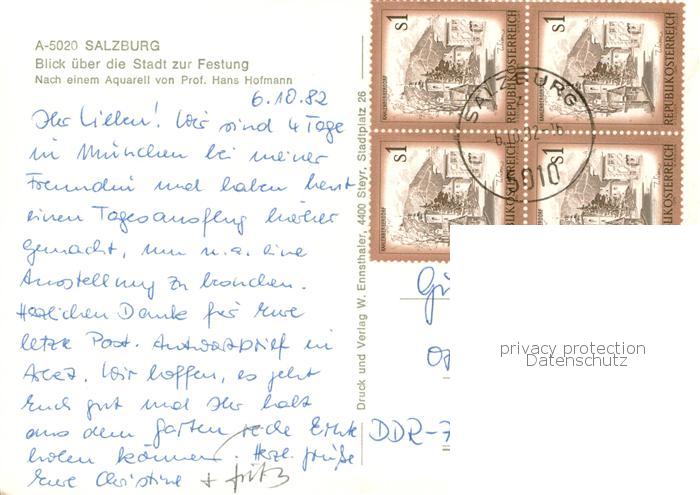 A-5020 SALZBURG
Blick über die Stadt zur Festung
Nach einem Aquarell von Prof. Hans Hofmann
6.10.82
Ihr Lieben! Wir sind 4 Tage
in München bei meiner
Freundin und haben heut
einen Tagesausflug hierher
gemacht, um u.a. eine
Ausstellung zu besuchen.
Herzlichen Dank für Eure
letzte Post. Antwortbrief in
Arbeit. Wir hoffen, es geht
Euch gut und Ihr habt
aus dem Garten reiche Ernte
holen können. Herzl. Grüße
Eure Christine + Fritz
Druck und Verlag W. Ennsthaler, 4400 Steyr, Stadtplatz 26
S1
REPUBLIK ÖSTERREICH
S1
REPUBLIK ÖSTERREICH
S1
REPUBLIK ÖSTERREICH
S1
REPUBLIK ÖSTERREICH
SALZBURG
-6.10.82-16
5010
DDR-7
privacy protection
Datenschutz